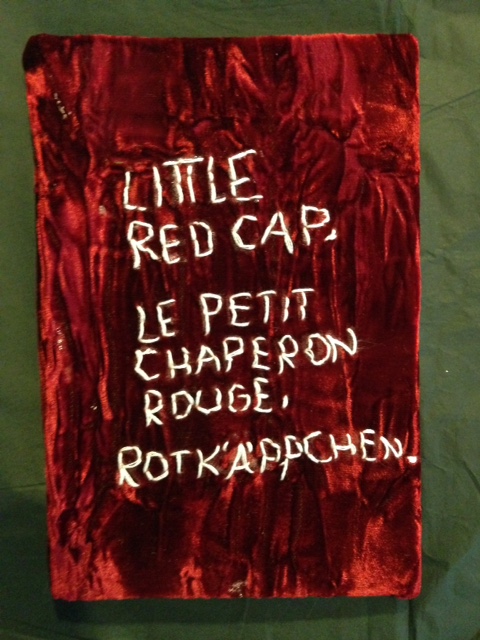 LITTLE
RED CAP.
LE PETIT
CHAPERON
ROUGE.
ROTKÄPPCHEN.